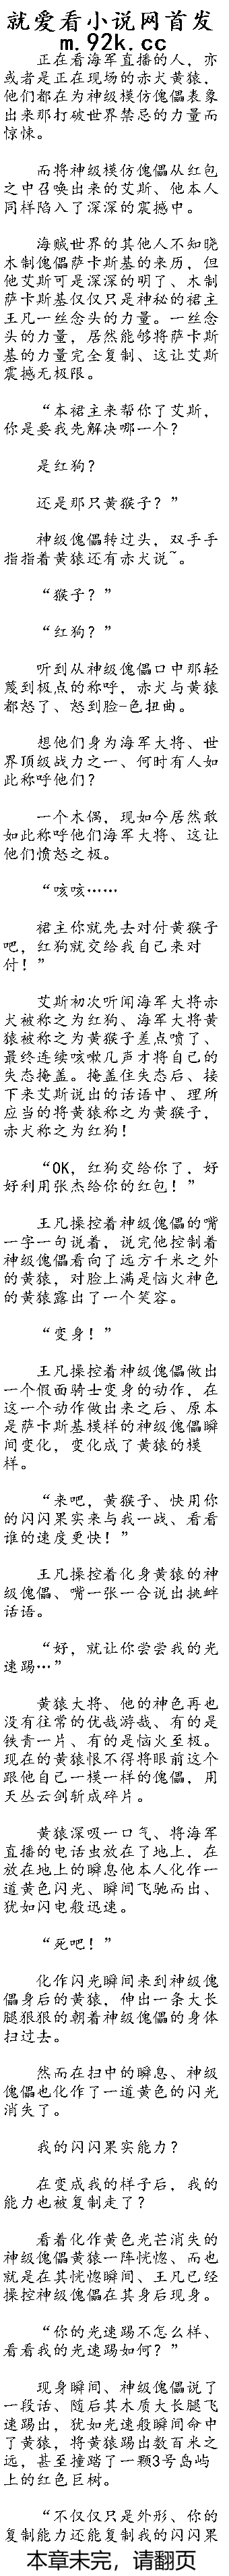 就爱看小说网首发
m.92k.cc
正在看海军直播的人，亦
或者是正在现场的赤犬黄猿，
他们都在为神级模仿傀儡表象
出来那打破世界禁忌的力量而
惊悚。
而将神级模仿傀儡从红包
之中召唤出来的艾斯、他本人
同样陷入了深深的震撼中。
海贼世界的其他人不知晓
木制傀儡萨卡斯基的来历，但
他艾斯可是深深的明了、木制
萨卡斯基仅仅只是神秘的裙主
王凡一丝念头的力量。一丝念
头的力量，居然能够将萨卡斯
基的力量完全复制、这让艾斯
震撼无极限。
“本裙主来帮你了艾斯，
你是要我先解决哪一个？
是红狗？
还是那只黄猴子？”
神级傀儡转过头，双手手
指指着黄猿还有赤犬说~。
“猴子？”
“红狗？”
听到从神级傀儡口中那轻
蔑到极点的称呼，赤犬与黄猿
都怒了、怒到脸-色扭曲。
想他们身为海军大将、世
界顶级战力之一、何时有人如
此称呼他们？
一个木偶，现如今居然敢
如此称呼他们海军大将、这让
他们愤怒之极。
“咳咳……
裙主你就先去对付黄猴子
吧，红狗就交给我自己来对
付！”
艾斯初次听闻海军大将赤
犬被称之为红狗、海军大将黄
猿被称之为黄猴子差点喷了、
最终连续咳嗽几声才将自己的
失态掩盖。掩盖住失态后、接
下来艾斯说出的话语中、理所
应当的将黄猿称之为黄猴子，
赤犬称之为红狗！
“OK，红狗交给你了，好
好利用张杰给你的红包！”
王凡操控着神级傀儡的嘴
一字一句说着，说完他控制着
神级傀儡看向了远方千米之外
的黄猿，对脸上满是恼火神色
的黄猿露出了一个笑容。
“变身！”
王凡操控着神级傀儡做出
一个假面骑士变身的动作，在
这一个动作做出来之后、原本
是萨卡斯基模样的神级傀儡瞬
间变化，变化成了黄猿的模
样。
“来吧，黄猴子、快用你
的闪闪果实来与我一战、看看
谁的速度更快！”
王凡操控着化身黄猿的神
级傀儡、嘴一张一合说出挑衅
话语。
“好，就让你尝尝我的光
速踢…”
黄猿大将、他的神色再也
没有往常的优哉游哉、有的是
铁青一片、有的是恼火至极。
现在的黄猿恨不得将眼前这个
跟他自己一模一样的傀儡，用
天丛云剑斩成碎片。
黄猿深吸一口气、将海军
直播的电话虫放在了地上，在
放在地上的瞬息他本人化作一
道黄色闪光、瞬间飞驰而出、
犹如闪电般迅速。
“死吧！”
化作闪光瞬间来到神级傀
儡身后的黄猿，伸出一条大长
腿狠狠的朝着神级傀儡的身体
扫过去。
然而在扫中的瞬息、神级
傀儡也化作了一道黄色的闪光
消失了。
我的闪闪果实能力？
在变成我的样子后，我的
能力也被复制走了？
看着化作黄色光芒消失的
神级傀儡黄猿一阵恍惚、而也
就是在其恍惚瞬间、王凡已经
操控神级傀儡在其身后现身。
“你的光速踢不怎么样、
看看我的光速踢如何？”
现身瞬间、神级傀儡说了
一段话、随后其木质大长腿飞
速踢出，犹如光速般瞬间命中
了黄猿，将黄猿踢出数百米之
远，甚至撞踏了一颗3号岛屿
上的红色巨树。
“不仅仅只是外形、你的
复制能力还能复制我的闪闪果
本章未完，请翻页